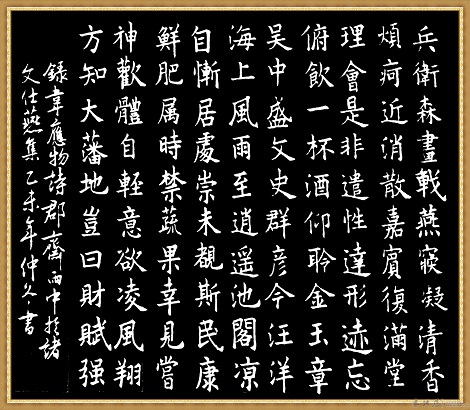 兵衛森畫戟燕寢凝清香
煩疴近消散嘉賓復滿堂
理會是非遣性達形迹忘
俯飲一杯酒仰聆金玉章
吳中盛文史群彦今汪洋
海上風雨至逍遥池閣凉
自慚居處崇未覩斯民康
鮮肥属時禁蔬果幸見嘗
神歡體自輕意欲凌風翔
方知大藩地豈曰財賦强
錄韋應物詩郡齋雨中扵諸
文仕燕集乙未年仲冬書